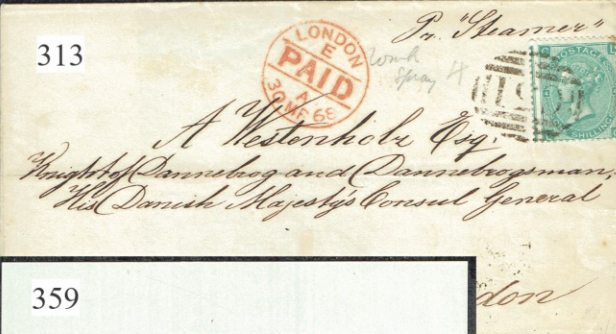 Pr "Steamer"
313
LONDON
E
PAID
A
30 MR 68
POSTAGE
SHILLING
A Westenholz Esq:
Knight of Dannebrog and Dannebrogsman,
His Danish Majesty's Consul General
don
359